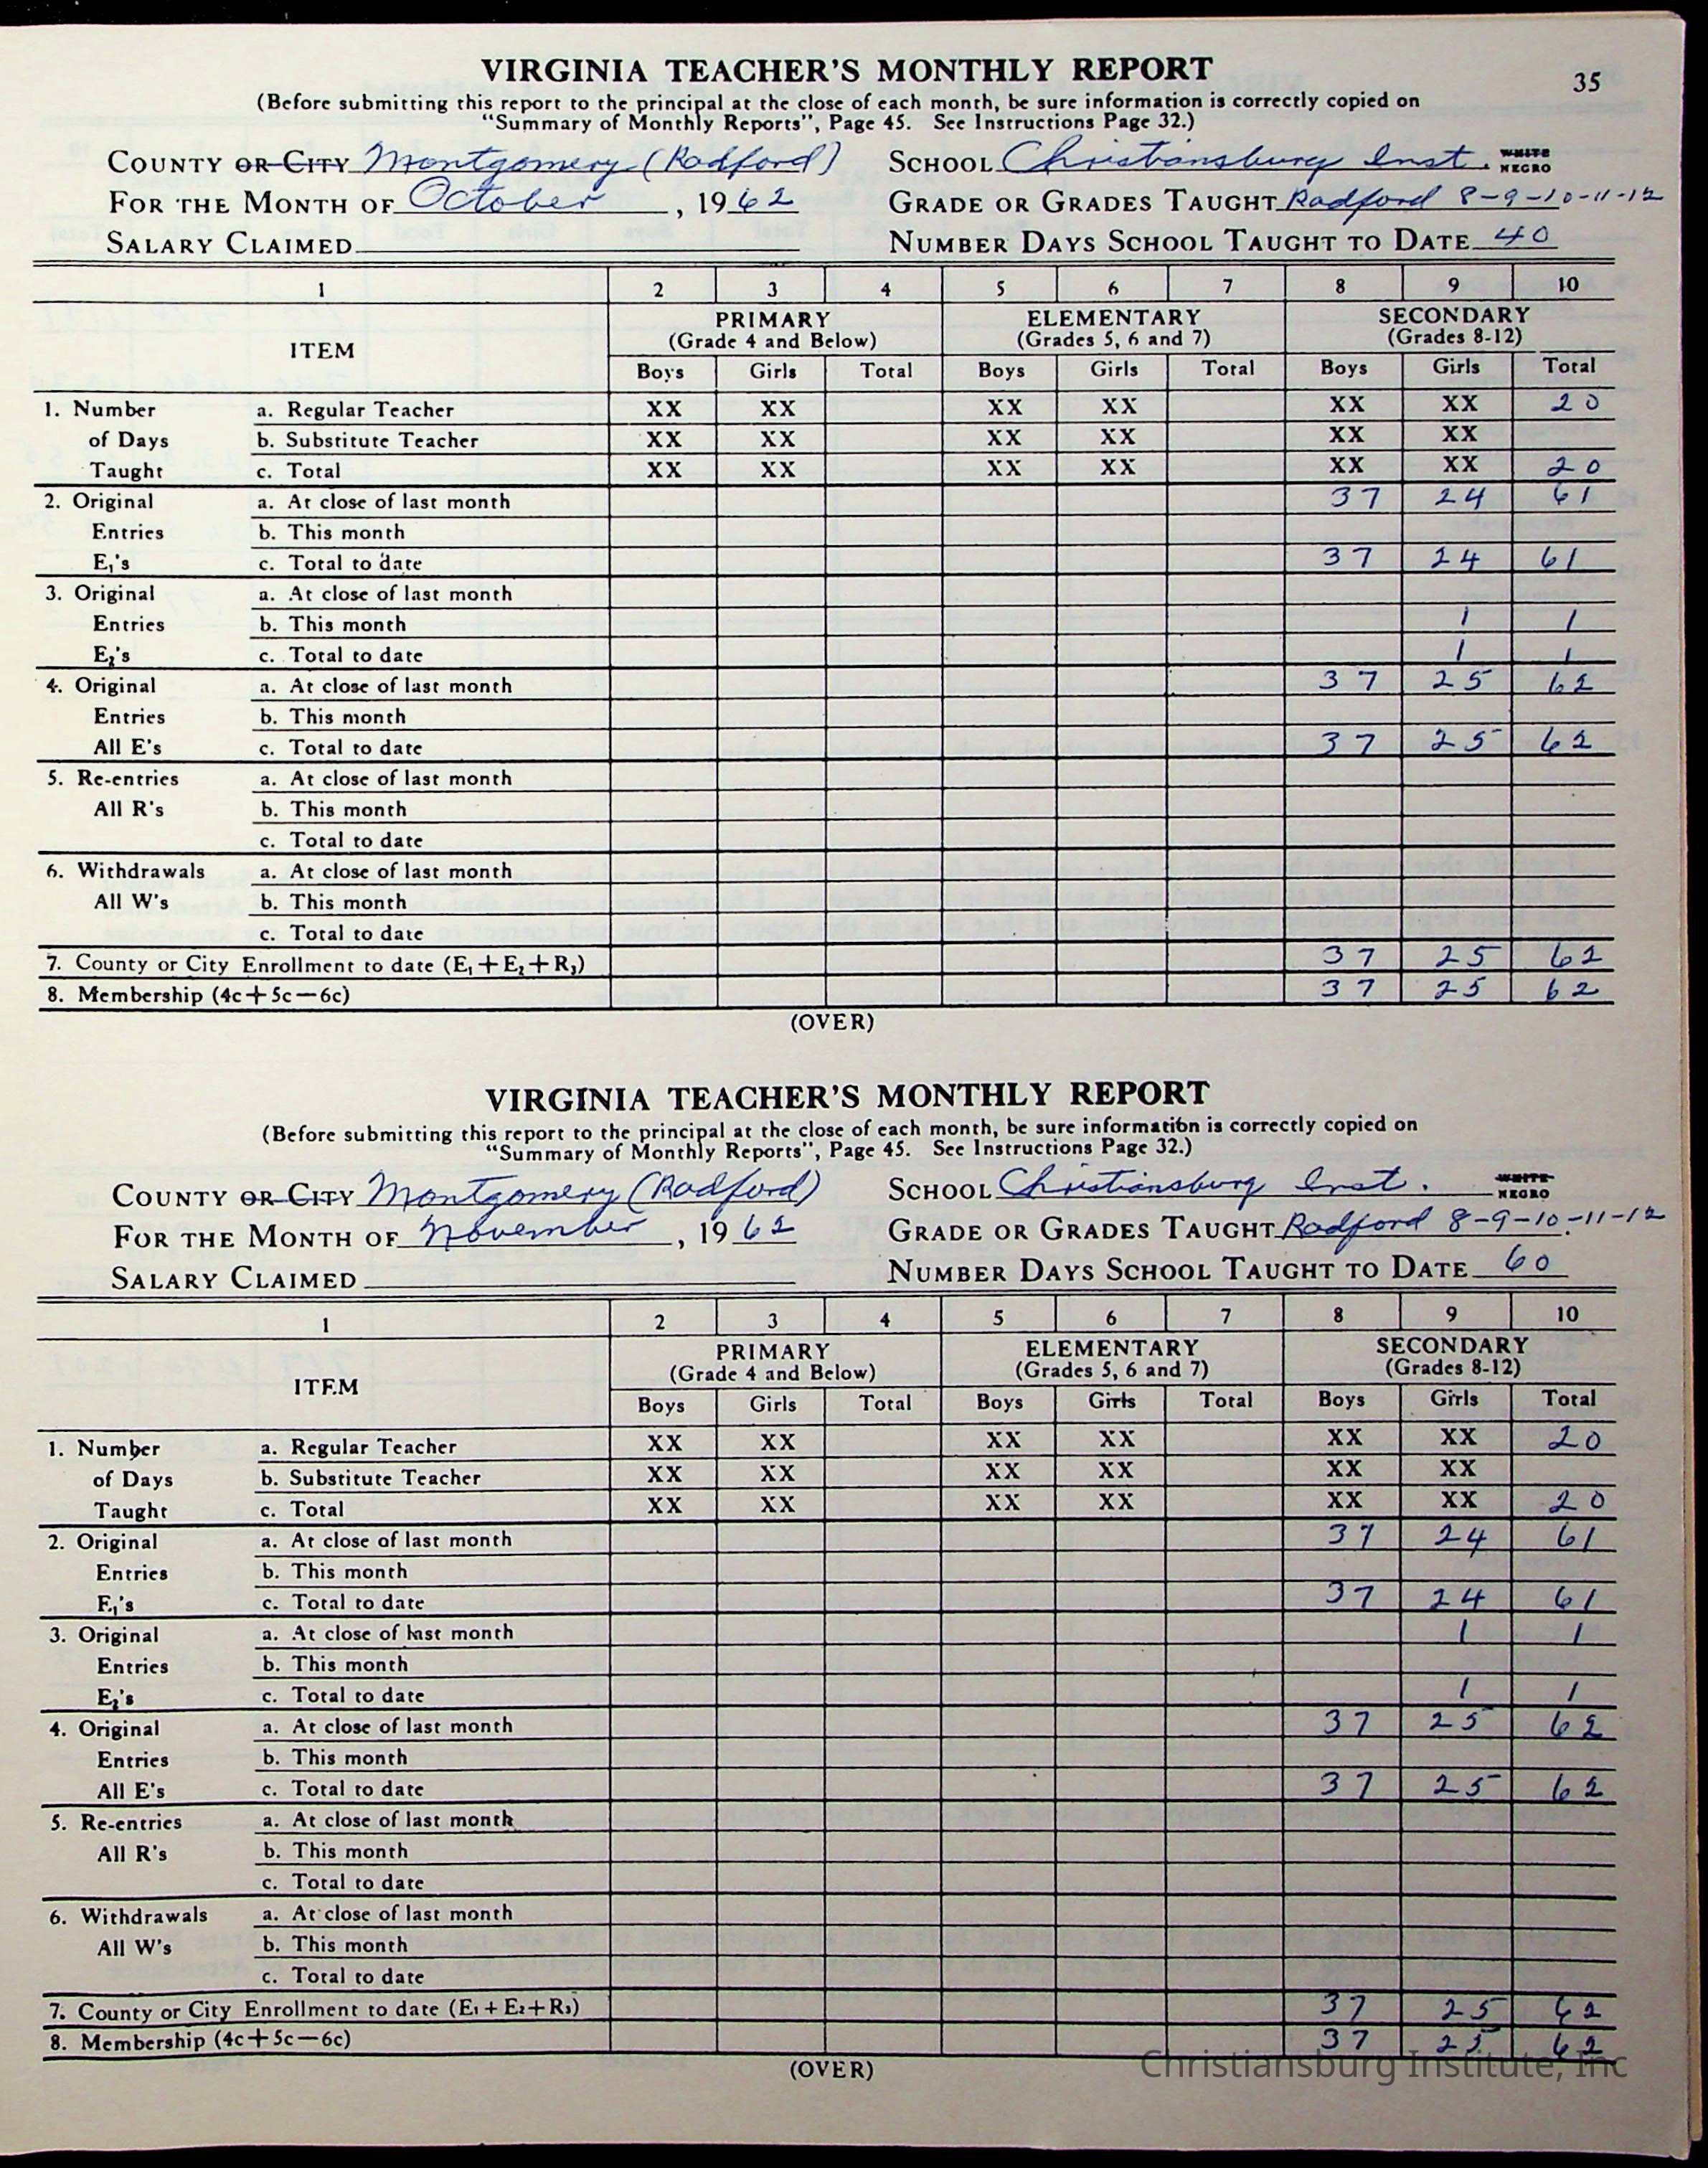 VIRGINIA TEACHER'S MONTHLY REPORT
35
(Before submitting this report to the principal at the close of each month, be sure information is correctly copied on
"Summary of Monthly Reports", Page 45. See Instructions Page 32.)
COUNTY OR CITY Montgomery (Radford) SCHOOL Christiansburg Inst. WHITE NEGRO
FOR THE MONTH OF October, 1962 GRADE OR GRADES TAUGHT Radford 8-9-10-11-12
SALARY CLAIMED NUMBER DAYS SCHOOL TAUGHT TO DATE 40
1 2 3 4 5 6 7 8 9 10
PRIMARY ELEMENTARY SECONDARY
ITEM (Grade 4 and Below) (Grades 5, 6 and 7) (Grades 8-12)
Boys Girls Total Boys Girls Total Boys Girls Total
1. Number a. Regular Teacher XX XX XX XX XX XX 20
of Days b. Substitute Teacher XX XX XX XX XX XX
Taught c. Total XX XX XX XX XX XX 20
2. Original a. At close of last month 37 24 61
Entries b. This month
E₁'s c. Total to date 37 24 61
3. Original a. At close of last month
Entries b. This month 1 1
E₂'s c. Total to date 1 1
4. Original a. At close of last month 37 25 62
Entries b. This month
All E's c. Total to date 37 25 62
5. Re-entries a. At close of last month
All R's b. This month
c. Total to date
6. Withdrawals a. At close of last month
All W's b. This month
c. Total to date
7. County or City Enrollment to date (E₁+E₂+R₃) 37 25 62
8. Membership (4c+5c—6c) 37 25 62
(OVER)
VIRGINIA TEACHER'S MONTHLY REPORT
(Before submitting this report to the principal at the close of each month, be sure information is correctly copied on
"Summary of Monthly Reports", Page 45. See Instructions Page 32.)
COUNTY OR CITY Montgomery (Radford) SCHOOL Christiansburg Inst. WHITE NEGRO
FOR THE MONTH OF November, 1962 GRADE OR GRADES TAUGHT Radford 8-9-10-11-12
SALARY CLAIMED NUMBER DAYS SCHOOL TAUGHT TO DATE 60
1 2 3 4 5 6 7 8 9 10
PRIMARY ELEMENTARY SECONDARY
ITEM (Grade 4 and Below) (Grades 5, 6 and 7) (Grades 8-12)
Boys Girls Total Boys Girls Total Boys Girls Total
1. Number a. Regular Teacher XX XX XX XX XX XX 20
of Days b. Substitute Teacher XX XX XX XX XX XX
Taught c. Total XX XX XX XX XX XX 20
2. Original a. At close of last month 37 24 61
Entries b. This month
E₁'s c. Total to date 37 24 61
3. Original a. At close of last month 1 1
Entries b. This month
E₂'s c. Total to date 1 1
4. Original a. At close of last month 37 25 62
Entries b. This month
All E's c. Total to date 37 25 62
5. Re-entries a. At close of last month
All R's b. This month
c. Total to date
6. Withdrawals a. At close of last month
All W's b. This month
c. Total to date
7. County or City Enrollment to date (E₁+E₂+R₃) 37 25 62
8. Membership (4c+5c—6c) 37 25 62
(OVER)
Christiansburg Institute, Inc